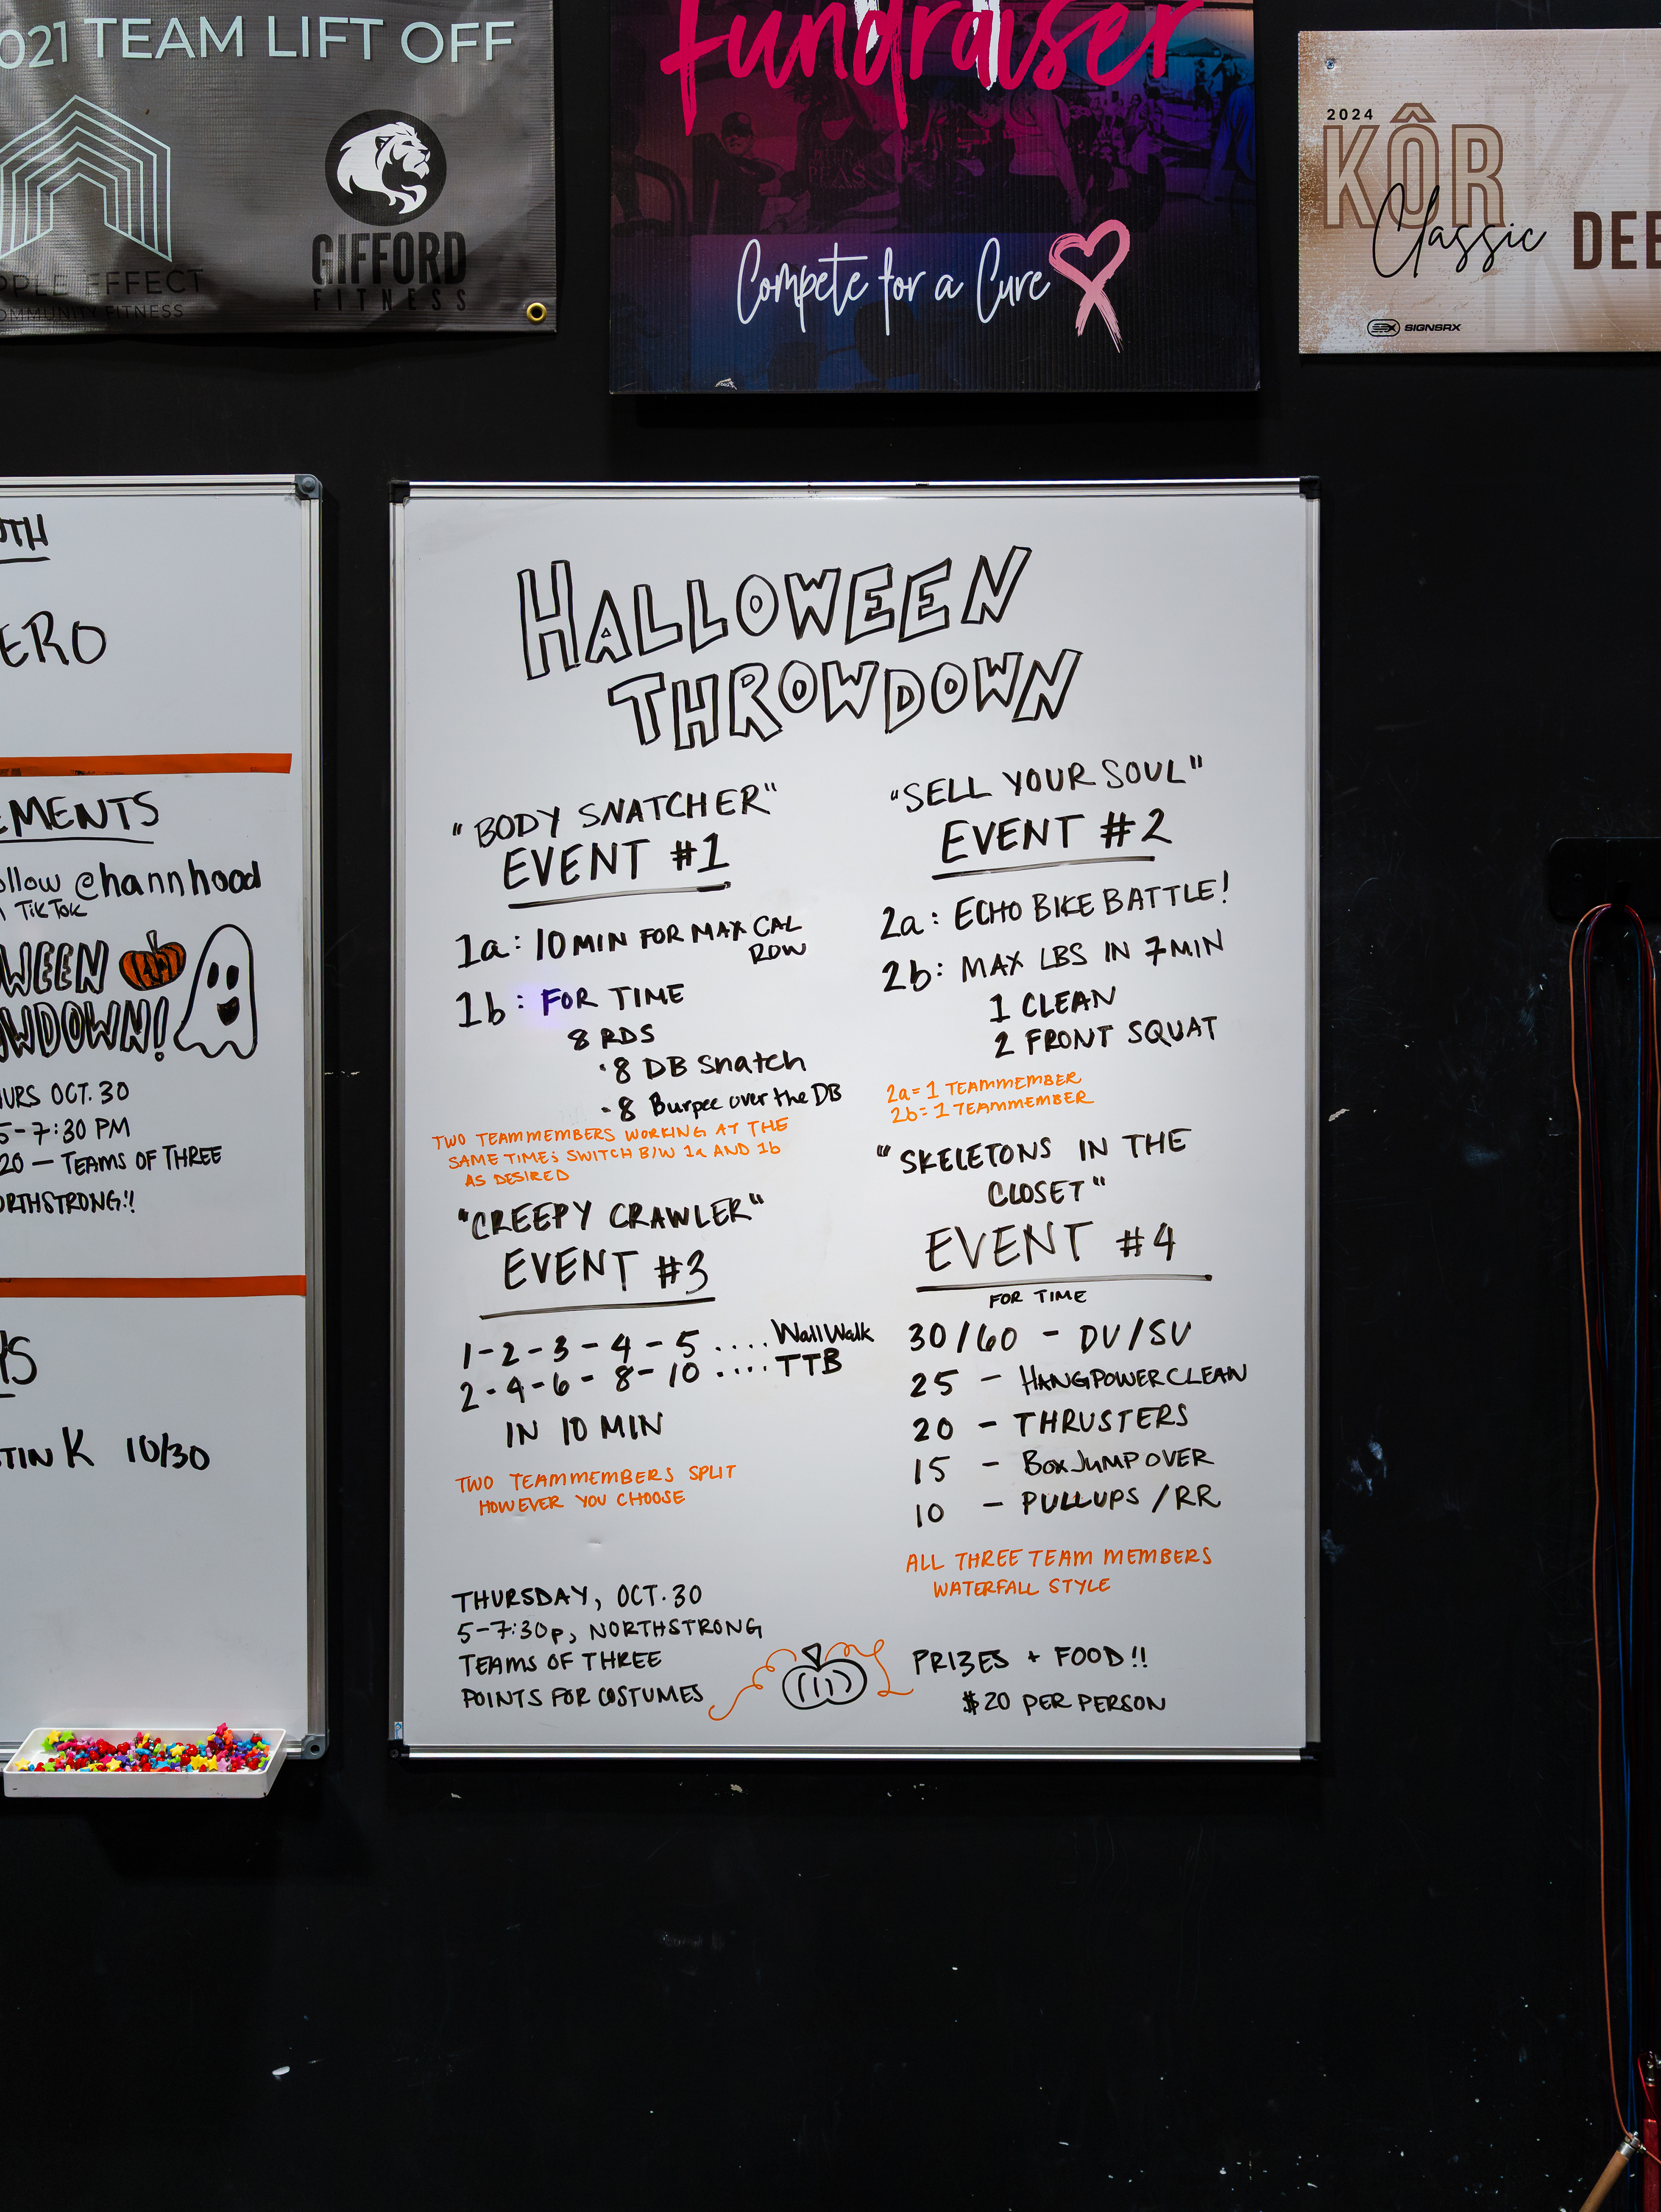 2021 TEAM LIFT OFF
GIFFORD
FITNESS
EFFECT
FITNESS
Fundraiser
Compete for a Cure
2024
KÔR
Classic
SIGNSRX
ERO
ollow @hannhood
TikTok
WEEN
WDOWN!
URS OCT. 30
5-7:30 PM
20 — TEAMS OF THREE
ORTHSTRONG!!
TIN K 10/30
HALLOWEEN
THROWDOWN
"BODY SNATCHER"
EVENT #1
1a: 10 MIN FOR MAX CAL
ROW
1b: FOR TIME
8 RDS
· 8 DB Snatch
- 8 Burpee over the DB
TWO TEAMMEMBERS WORKING AT THE
SAME TIME; SWITCH B/W 1a AND 1b
AS DESIRED
"SELL YOUR SOUL"
EVENT #2
2a: ECHO BIKE BATTLE!
2b: MAX LBS IN 7 MIN
1 CLEAN
2 FRONT SQUAT
2a = 1 TEAMMEMBER
2b = 1 TEAMMEMBER
"CREEPY CRAWLER"
EVENT #3
1-2-3-4-5 .... Wall Walk
2-4-6-8-10 .... TTB
IN 10 MIN
TWO TEAMMEMBERS SPLIT
HOWEVER YOU CHOOSE
"SKELETONS IN THE
CLOSET"
EVENT #4
FOR TIME
30/60 - DU/SU
25 - HANG POWER CLEAN
20 - THRUSTERS
15 - Box Jump OVER
10 - PULLUPS / RR
ALL THREE TEAM MEMBERS
WATERFALL STYLE
THURSDAY, OCT. 30
5-7:30p, NORTHSTRONG
TEAMS OF THREE
POINTS FOR COSTUMES
PRIZES + FOOD!!
$20 PER PERSON